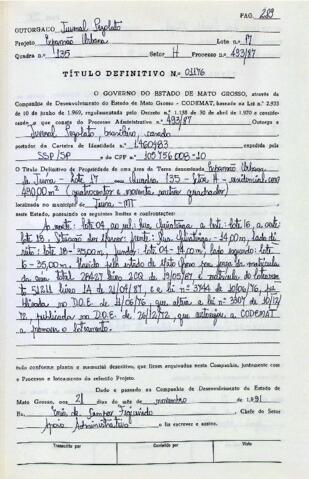 PAG. 293
OUTORGADO Juvenal Pegolato
Projeto Expansão Urbana Lote n.º 17
Quadra n.º 135 Setor H Processo n.º 493/87
TÍTULO DEFINITIVO N.º 01176
O GOVERNO DO ESTADO DE MATO GROSSO, através da
Companhia de Desenvolvimento do Estado de Mato Grosso - CODEMAT, baseado na Lei n.º 2.933
de 10 de junho de 1.969, regulamentada pelo Decreto n.º 1.138 de 30 de abril de 1.970 e conside-
rando o que consta do Processo Administrativo n.º 493/87 Outorga a
Juvenal Pegolato, brasileiro, casado
portador da Carteira de Identidade n.º 1460483
SSP/SP e do CPF n.º 105756008-10
O Título Definitivo de Propriedade de uma área de Terra denominada Expansão Urbana
de Juina - Lote 17 Quadra 135 - Setor H - residencial com
490,00 m² (quatrocentos e noventa metros quadrados)
localizado no município de Juina - MT
neste Estado, possuindo os seguintes limites e confrontações:
ao norte: lote 04, ao sul: rua a leste: lote 16, a oeste
lote 18; frente: Rua - 14,00 m, lado di-
reito: lote 18 - 35,00 m, fundos: lote 04 - 14,00 m, lado esquerdo: lote
16 - 35,00 m, pelo estado de Mato Grosso matrícula
da área total 28427 livro 209 de 19/05/87 e matrícula do loteamento
livro de 21/04/87, e a lei n.º 3744 de 10/06/76, pu-
blicada no D.O.E. de 11/06/76, que altera a lei n.º 3307 de 10/12/
72, publicada no D.O.E. de 26/12/72, que autorizou a CODEMAT
a promover o loteamento.
tudo conforme planta e memorial descritivo, que ficam arquivados nesta Companhia, juntamente com
o Processo e loteamento do referido Projeto.
Dado e passado na Companhia de Desenvolvimento do Estado de
Mato Grosso, aos 21 dias do mês de novembro de 1.991
Eu, de Campos Figueiredo Chefe do Setor
Apoio Administrativo o fiz escrever e assino.
Transcrito por Conferido por Visto